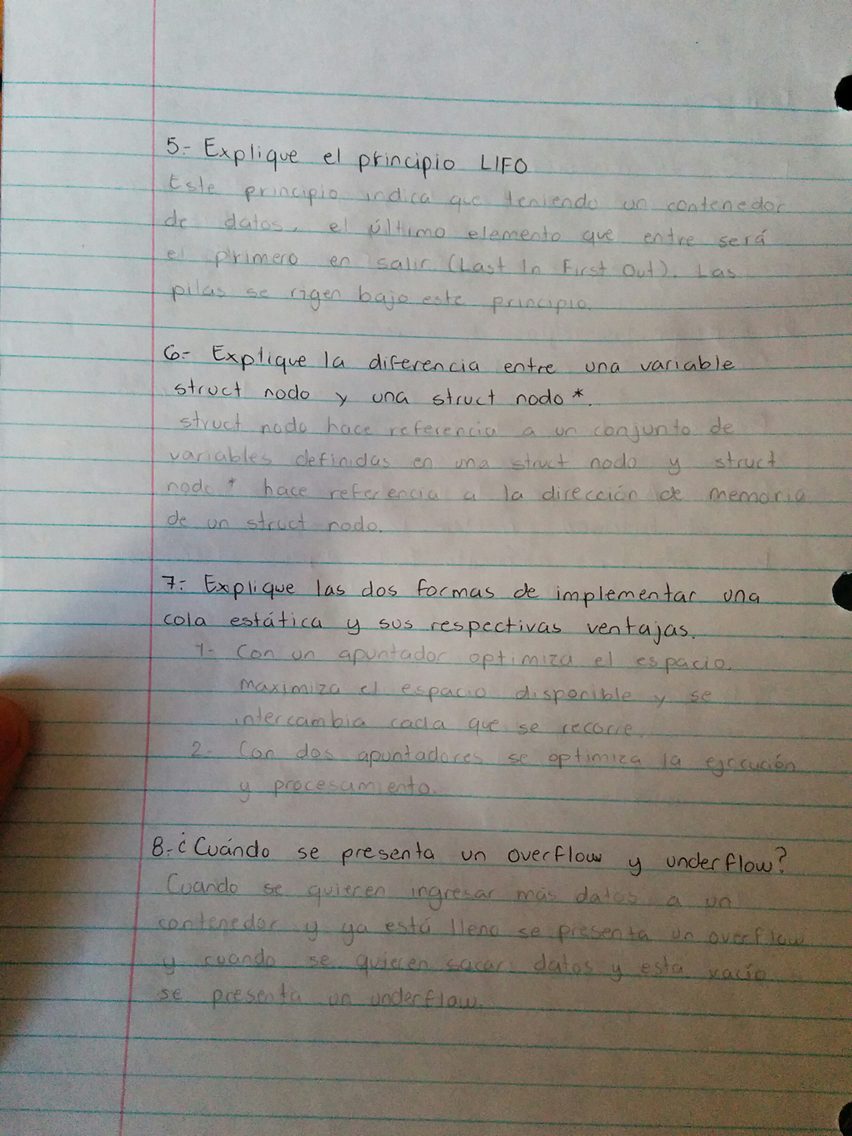 5.- Explique el principio LIFO
Este principio indica que teniendo un contenedor
de datos, el último elemento que entre será
el primero en salir (Last In First Out). Las
pilas se rigen bajo este principio.
6.- Explique la diferencia entre una variable
struct nodo y una struct nodo *.
struct nodo hace referencia a un conjunto de
variables definidas en una struct nodo y struct
nodo * hace referencia a la dirección de memoria
de un struct nodo.
7.- Explique las dos formas de implementar una
cola estática y sus respectivas ventajas.
1- Con un apuntador optimiza el espacio.
maximiza el espacio disponible y se
intercambia cada que se recorre.
2- Con dos apuntadores se optimiza la ejecución
y procesamiento.
8.- ¿Cuándo se presenta un overflow y underflow?
Cuando se quieren ingresar más datos a un
contenedor y ya está lleno se presenta un overflow
y cuando se quieren sacar datos y esta vacío
se presenta un underflow.